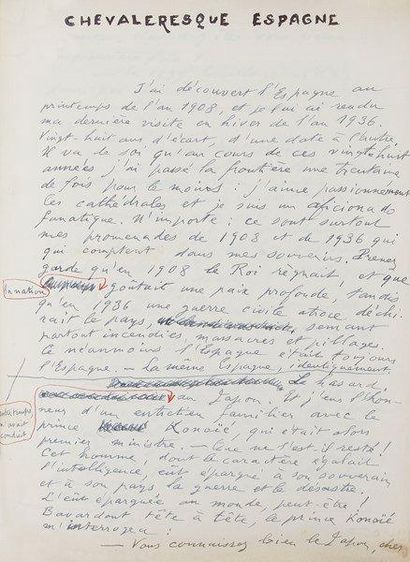 CHEVALERESQUE ESPAGNE
J'ai découvert l'Espagne au
printemps de l'an 1908, et je lui ai rendu
ma dernière visite en hiver de l'an 1936.
Vingt huit ans d'écart, d'une date à l'autre.
Il va de soi qu'au cours de ces vingt huit
années j'ai passé la frontière une trentaine
de fois pour le moins : j'aime passionnément
les cathédrales et je suis un aficionado
fanatique. N'importe : ce sont surtout
mes promenades de 1908 et de 1936 qui
qui comptent dans mes souvenirs. Prenez
garde qu'en 1908 le Roi régnait, et que
la nation
goûtait une paix profonde, tandis
qu'en 1936 une guerre civile atroce déchi-
rait le pays, semant
partout incendies, massacres et pillages
Et néanmoins l'Espagne était toujours
l'Espagne – la même Espagne, identiquement
Le hasard,
avait conduit
au Japon. Et j'eus l'hon-
neur d'un entretien familier avec le
prince Konoïé, qui était alors
premier ministre – Que ne l'est-il resté !
Cet homme, dont le caractère égalait
l'intelligence, eût épargné à son souverain
et à son pays, la guerre et le désastre.
L'eût épargnée au monde, peut-être !
Bavardant tête à tête, le prince Konoïé
m'interrogea :
– Vous connaissez bien le Japon, cher